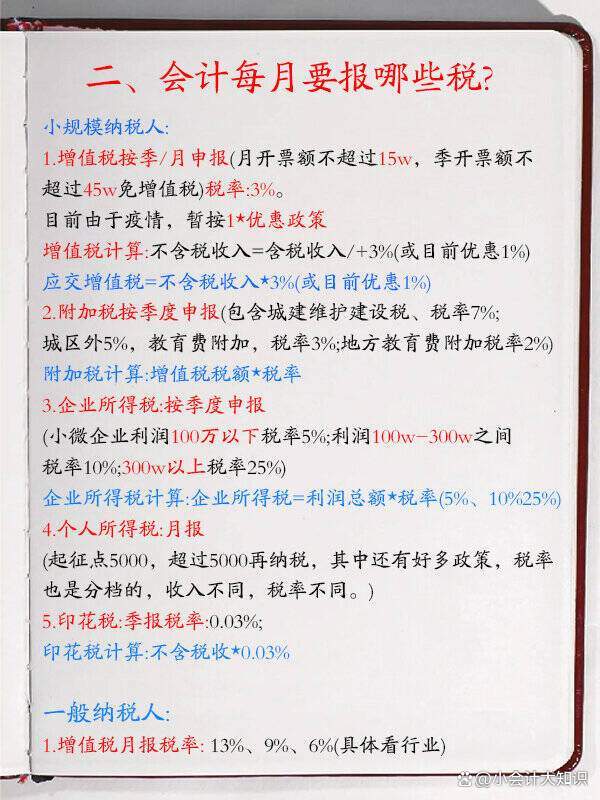 二、会计每月要报哪些税?
小规模纳税人:
1.增值税按季/月申报(月开票额不超过15w，季开票额不
超过45w免增值税)税率:3%。
目前由于疫情，暂按1*优惠政策
增值税计算:不含税收入=含税收入/+3%(或目前优惠1%)
应交增值税=不含税收入*3%(或目前优惠1%)
2.附加税按季度申报(包含城建维护建设税、税率7%;
城区外5%，教育费附加，税率3%;地方教育费附加税率2%)
附加税计算:增值税税额*税率
3.企业所得税:按季度申报
(小微企业利润100万以下税率5%;利润100w-300w之间
税率10%;300w以上税率25%)
企业所得税计算:企业所得税=利润总额*税率(5%、10%25%)
4.个人所得税:月报
(起征点5000，超过5000再纳税，其中还有好多政策，税率
也是分档的，收入不同，税率不同。)
5.印花税:季报税率:0.03%;
印花税计算:不含税收*0.03%
一般纳税人:
1.增值税月报税率: 13%、9%、6%(具体看行业)
@小会计大知识